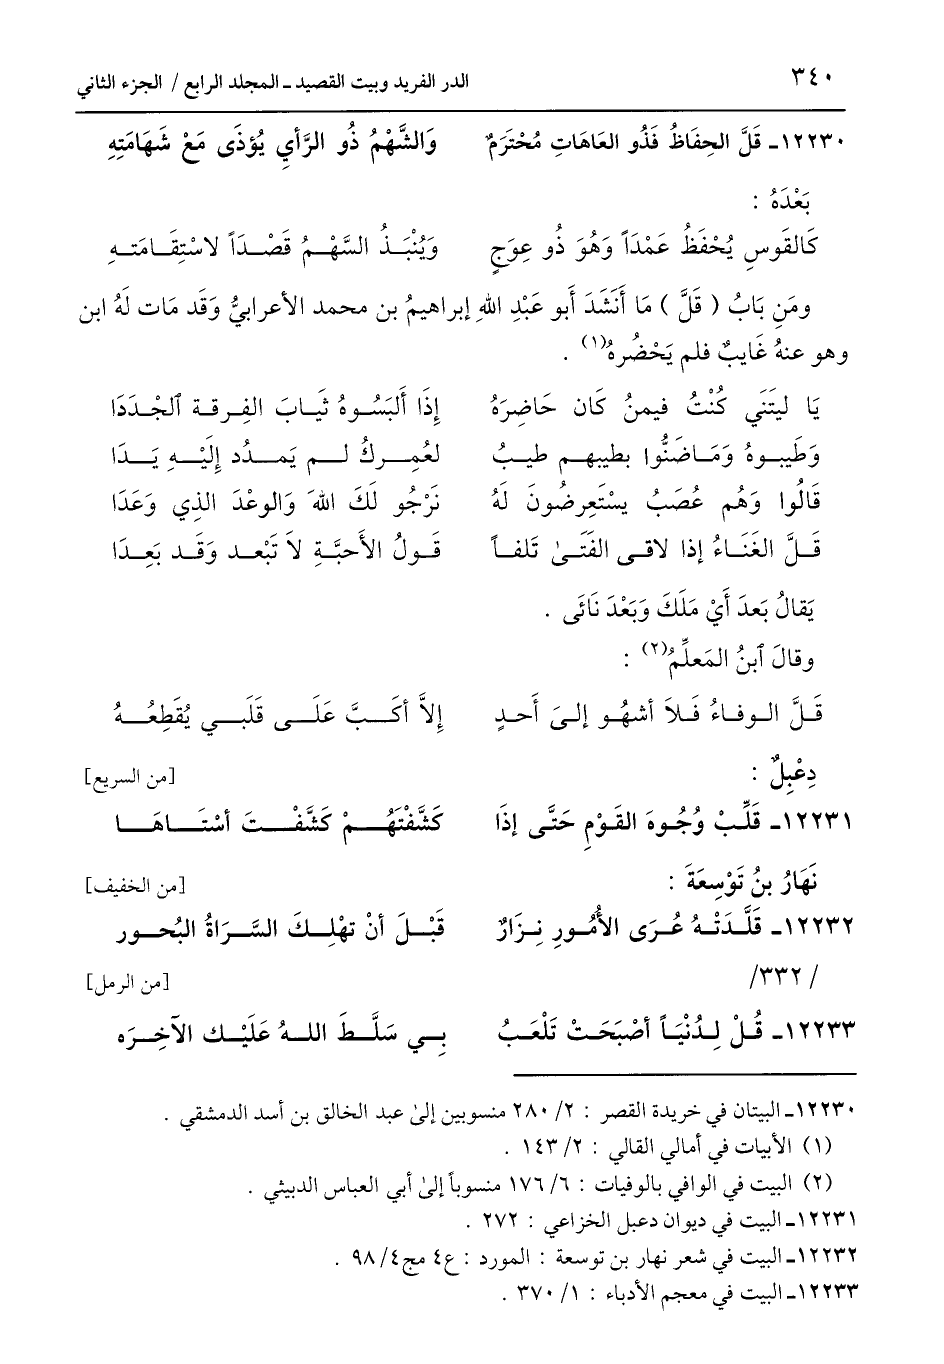 ٣٤٠ الدر الفريد وبيت القصيد ـ المجلد الرابع / الجزء الثاني
١٢٢٣٠ـ قَلَّ الحِفَاظُ فَذُو العَاهَاتِ مُحْتَرَمٌ وَالشَّهْمُ ذُو الرَّأي يُؤذَى مَعْ شَهَامَتِهِ
بَعْدَهُ :
كَالقَوسِ يُحْفَظُ عَمْدَاً وَهُوَ ذُو عِوَجٍ وَيُنْبَذُ السَّهْمُ قَصْدَاً لاسْتِقَامَتهِ
ومَنِ بَابُ ( قَلَّ ) مَا أَنَشَدَ أَبو عَبْدِ اللهِ إبراهيمُ بن محمد الأعرابيُّ وَقَد مَات لَهُ ابن
وهو عنهُ غَايبٌ فلم يَحْضُرهُ(١) .
يَا ليتَنَي كُنْتُ فيمنُ كَان حَاضِرَهُ إِذَا أَلبَسُوهُ ثيَابَ الفِرقة ٱلجُدَدَا
وَطَيبوهُ وَمَاضَنُّوا بطيبهم طيبُ لعُمِركُ لم يَمدُد إِلَيْهِ يَدَا
قَالُوا وَهُم عُصَبُ يسْتَعِرضُونَ لَهُ نَرْجُو لَكَ اللهَ وَالوعْدَ الذي وَعَدَا
قَلَّ الغَنَاءُ إذا لاقى الفَتَىٰ تَلفاً قَولُ الأَحبَّةِ لاَ تَبْعد وَقَد بَعِدَا
يَقالُ بَعدَ أَيْ مَلَكَ وَبَعْدَ نَائَى .
وقالَ ٱبنُ المَعلِّمُ(٢) :
قَلَّ الوفاءُ فَلاَ أشهُو إلىَ أَحدٍ إلاَّ أكَبَّ عَلَى قَلَبي يُقَطِعُهُ
دِعْبِلٌ : [من السريع]
١٢٢٣١ـ قَلِّبْ وُجُوهَ القَوْمِ حَتَّى إذَا كَشَّفْتَهُمْ كَشَّفْتَ أسْتَاهَا
نَهَارُ بنُ تَوْسِعَةَ : [من الخفيف]
١٢٢٣٢ـ قَلَّدَتْهُ عُرَى الأُمُورِ نِزَارٌ قَبْلَ أنْ تهْلِكَ السَّرَاةُ البُحُور
/ ٣٣٢/ [من الرمل]
١٢٢٣٣ـ قُلْ لِدُنْيَاً أصْبَحَتْ تَلْعَبُ بِي سَلَّطَ اللهُ عَلَيْك الآخِرَه
١٢٢٣٠ـ البيتان في خريدة القصر : ٢/ ٢٨٠ منسوبين إلىٰ عبد الخالق بن أسد الدمشقي .
(١) الأبيات في أمالي القالي : ٢/ ١٤٣ .
(٢) البيت في الوافي بالوفيات : ٦/ ١٧٦ منسوباً إلىٰ أبي العباس الدبيثي .
١٢٢٣١ـ البيت في ديوان دعبل الخزاعي : ٢٧٢ .
١٢٢٣٢ـ البيت في شعر نهار بن توسعة : المورد : ع٤ مج٤/ ٩٨ .
١٢٢٣٣ـ البيت في معجم الأدباء : ١/ ٣٧٠ .